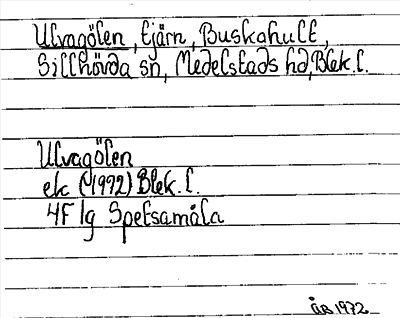 Ulvagölen, tjärn, Buskahult,
Sillhövda sn, Medelstads hd, Blek.l.
Ulvagölen
ek (1972) Blek.l.
4F lg Spetsamåla
ÅB 1972